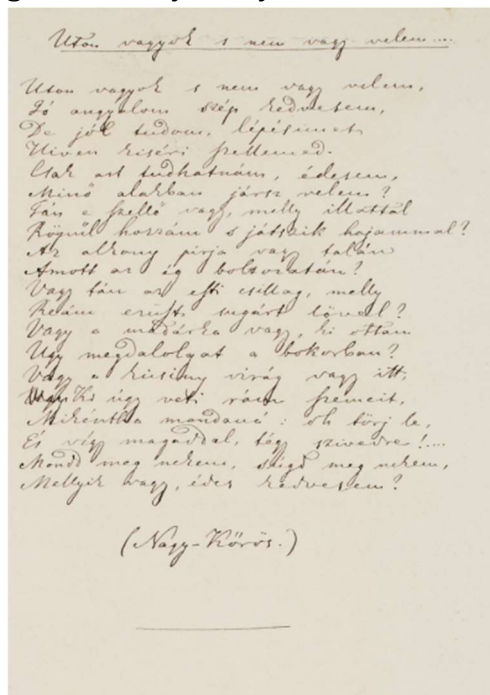 Uton vagyok s nem vagy velem....
Uton vagyok s nem vagy velem,
Jó angyalom szép kedvesem,
De jól tudom, lépésimet
Hiven kiséri szellemed.
Csak azt tudhatnám, édesem,
Minő alakban jársz velem?
Tán e szellő vagy, melly illattal
Röpül hozzám s játszik hajammal?
Az alkony pirja vagy talán
Amott az ég boltozatán?
Vagy tán az esti csillag, melly
Reám ezüst sugárt lövel?
Vagy a madárka vagy, ki ottan
Ugy megdalolgat a bokorban?
Vagy a kicsiny virág vagy itt,
Ki úgy veti rám szemeit,
Mikéntha mondaná: oh törj le,
És vígy magaddal, tégy szivedre!....
Mondd meg nekem, súgd meg nekem,
Mellyik vagy, édes kedvesem?
(Nagy-Kőrös.)